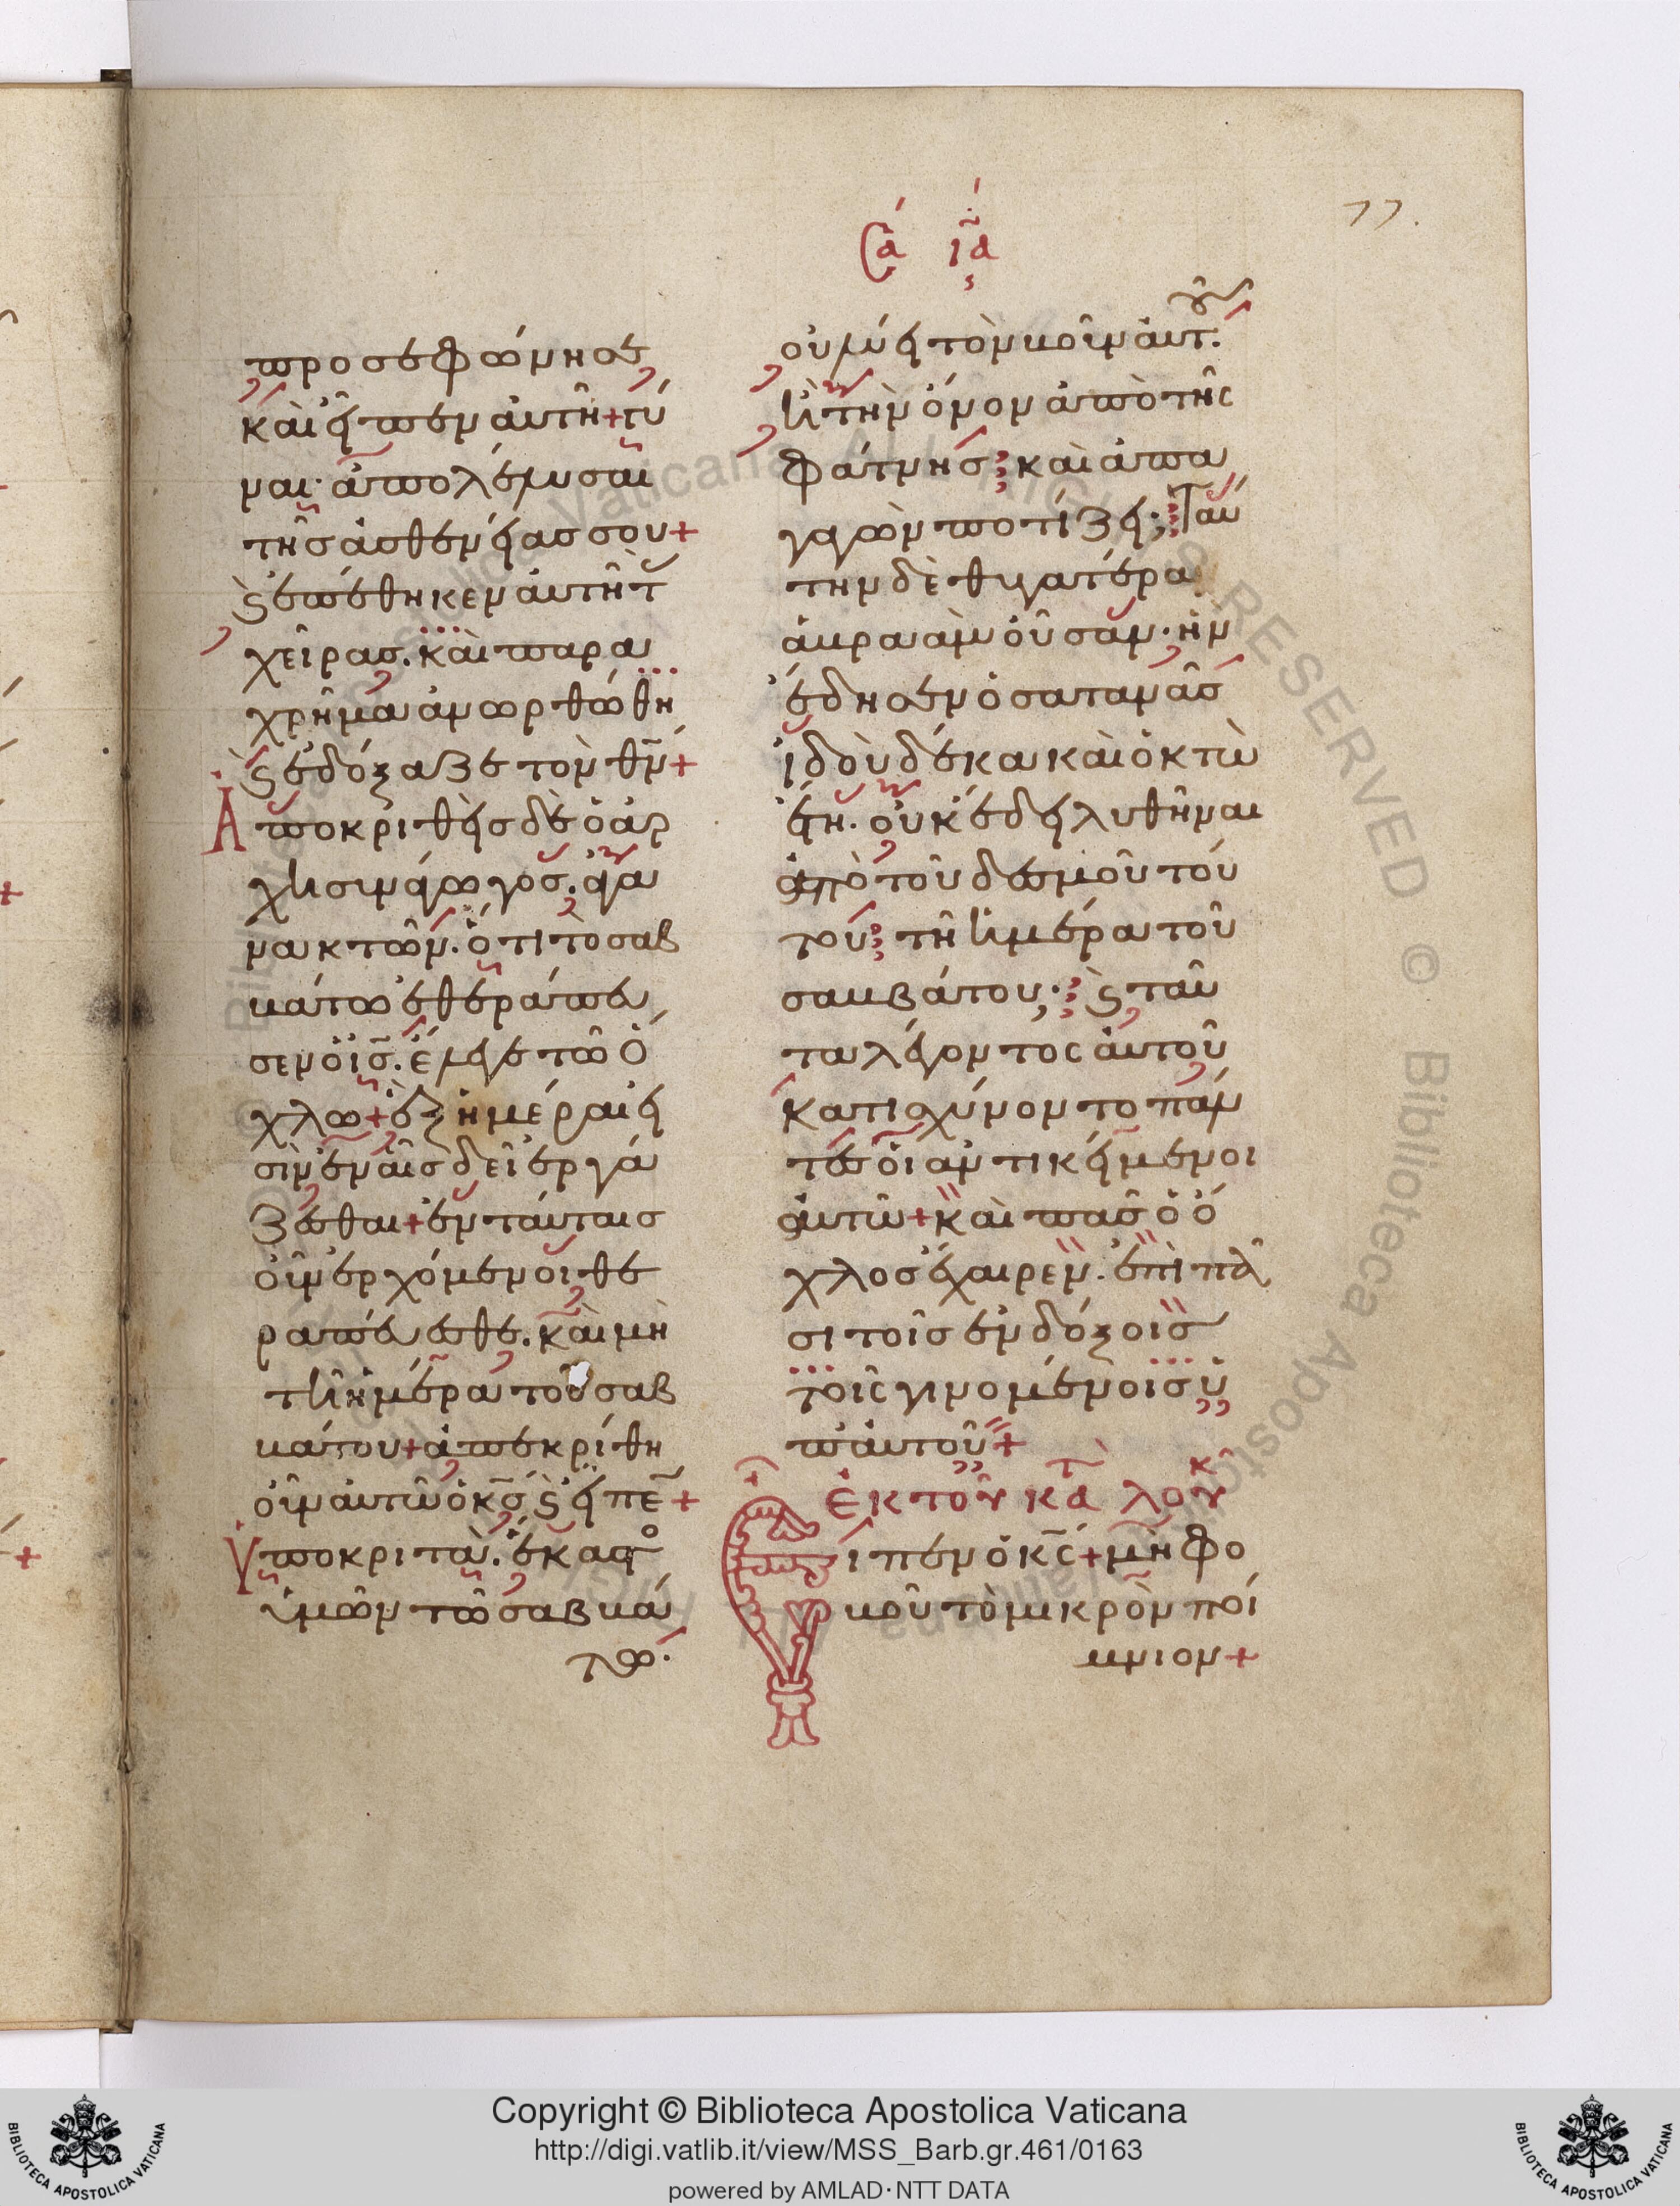 77.
Σα ια
προσεφώνησεν
καὶ εἶπεν αὐτῆ + γύ
ναι· ἀπολέλυσαι
τῆς ἀσθενείας σου +
ϗ ἐπέθηκεν αὐτῆ τ
χεῖρας. καὶ παρα
χρῆμα ἀνωρθώθη
ϗ ἐδόξαζε τὸν θν +
Ἀποκριθεὶς δὲ ὁ ἀρ
χισυνάγωγος. ἀγα
νακτῶν. ὅτι τὸ σαβ
βάτω ἐθεράπευ
σεν ὁ ις. ἔλεγε τῶ ὄ
χλω + ἓξ ἡμέραι εἰ
σὶν ἐν αἷς δεῖ ἐργά
ζεσθαι + ἐν ταύταις
οὖν ἐρχόμενοι θε
ραπεύεσθε. καὶ μὴ
τῆ ἡμέρα τοῦ σαβ
βάτου + ἀπεκρίθη
οὖν αὐτῶ ὁ κς ϗ εἶπε +
Ὑποκριτὰ. ἕκαστο
ὑμῶν τῶ σαββά
τω.
οὐ λύει τὸν βοῦν αὐτοῦ.
ἢ τὴν ὄνον ἀπὸ τῆς
φάτνης; καὶ ἀπα
γαγὼν ποτίζει; Ταύ
την δὲ θυγατέρα
ἀβραὰμ οὖσαν. ἣν
ἔδησεν ὁ σατανᾶς
ἰδοὺ δέκα καὶ ὀκτὼ
ἔτη. οὐκ ἔδει λυθῆναι
ἀπὸ τοῦ δεσμοῦ τού
του; τῆ ἡμέρα τοῦ
σαββάτου; ϗ ταῦ
τα λέγοντος αὐτοῦ
κατισχύνοντο πάν
τες οἱ ἀντικείμενοι
αὐτῶ + καὶ πᾶς ὁ ὄ
χλος ἔχαιρεν. ἐπὶ πᾶ
σι τοῖς ἐνδόξοις
τοῖς γινομένοις ὑ
π αὐτοῦ +
ἐκ τοῦ κατὰ λουκ
Εἶπεν ὁ κς + μὴ φο
βοῦ τὸ μικρὸν ποί
μνιον +
Copyright © Biblioteca Apostolica Vaticana
http://digi.vatlib.it/view/MSS_Barb.gr.461/0163
powered by AMLAD·NTT DATA
BIBLIOTECA APOSTOLICA VATICANA
BIBLIOTECA APOSTOLICA VATICANA